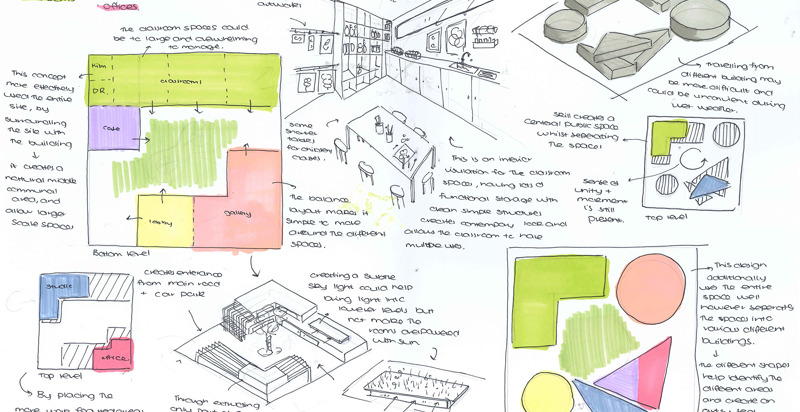 offices
The classroom spaces could
be to large and overwhelming
to manage.
This concept
more effectively
used the entire
site, by
surrounding
the site with
the building
it creates a
natural middle
communal
area, and
allow larger
scale spaces
Kiln
D.R.
classroom1
cafe
lobby
gallery
Bottom level
The balance
layout makes it
simple to move
around the different
spaces.
some
shorter
tables
for children
classes.
This is an interior
visulation for the classroom
spaces, having lots of
functional storage with
clean simple structures
creates contempary look and
allows the classroom to have
multiple uses.
Travelling from
different building may
be more difficult and
could be unconvient during
wet weather.
still creates a
central public space
whilst seperating
the spaces
sense of
unity +
movement
is still
present.
Top level
studio
office
Top level
By placing the
creates enterance
from main road
+ car park
creating a subtle
sky light could help
bring light into
lower levels but
not makes the
room overpowered
with sun.
Through extruding
only
This design
additionally
use the entire
space well
however seperats
the spaces into
various different
buildings.
the different shapes
help identify the
different areas
and create an